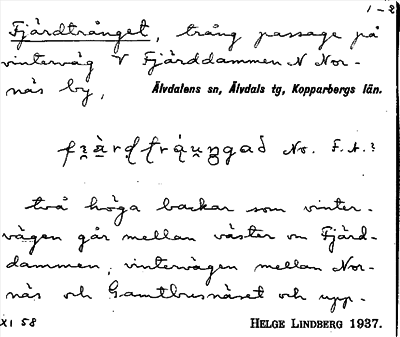 1-2
Fjärdtrånget, trång passage på
vinterväg V Fjärddammen N Nor-
näs by, Älvdalens sn, Älvdals tg, Kopparbergs län.
No. F.A.:
två höga backar som vinter-
vägen går mellan väster om Fjärd-
dammen, vintervägen mellan Nor-
näs och Gamtbusnäset och upp-
XI 58 HELGE LINDBERG 1937.